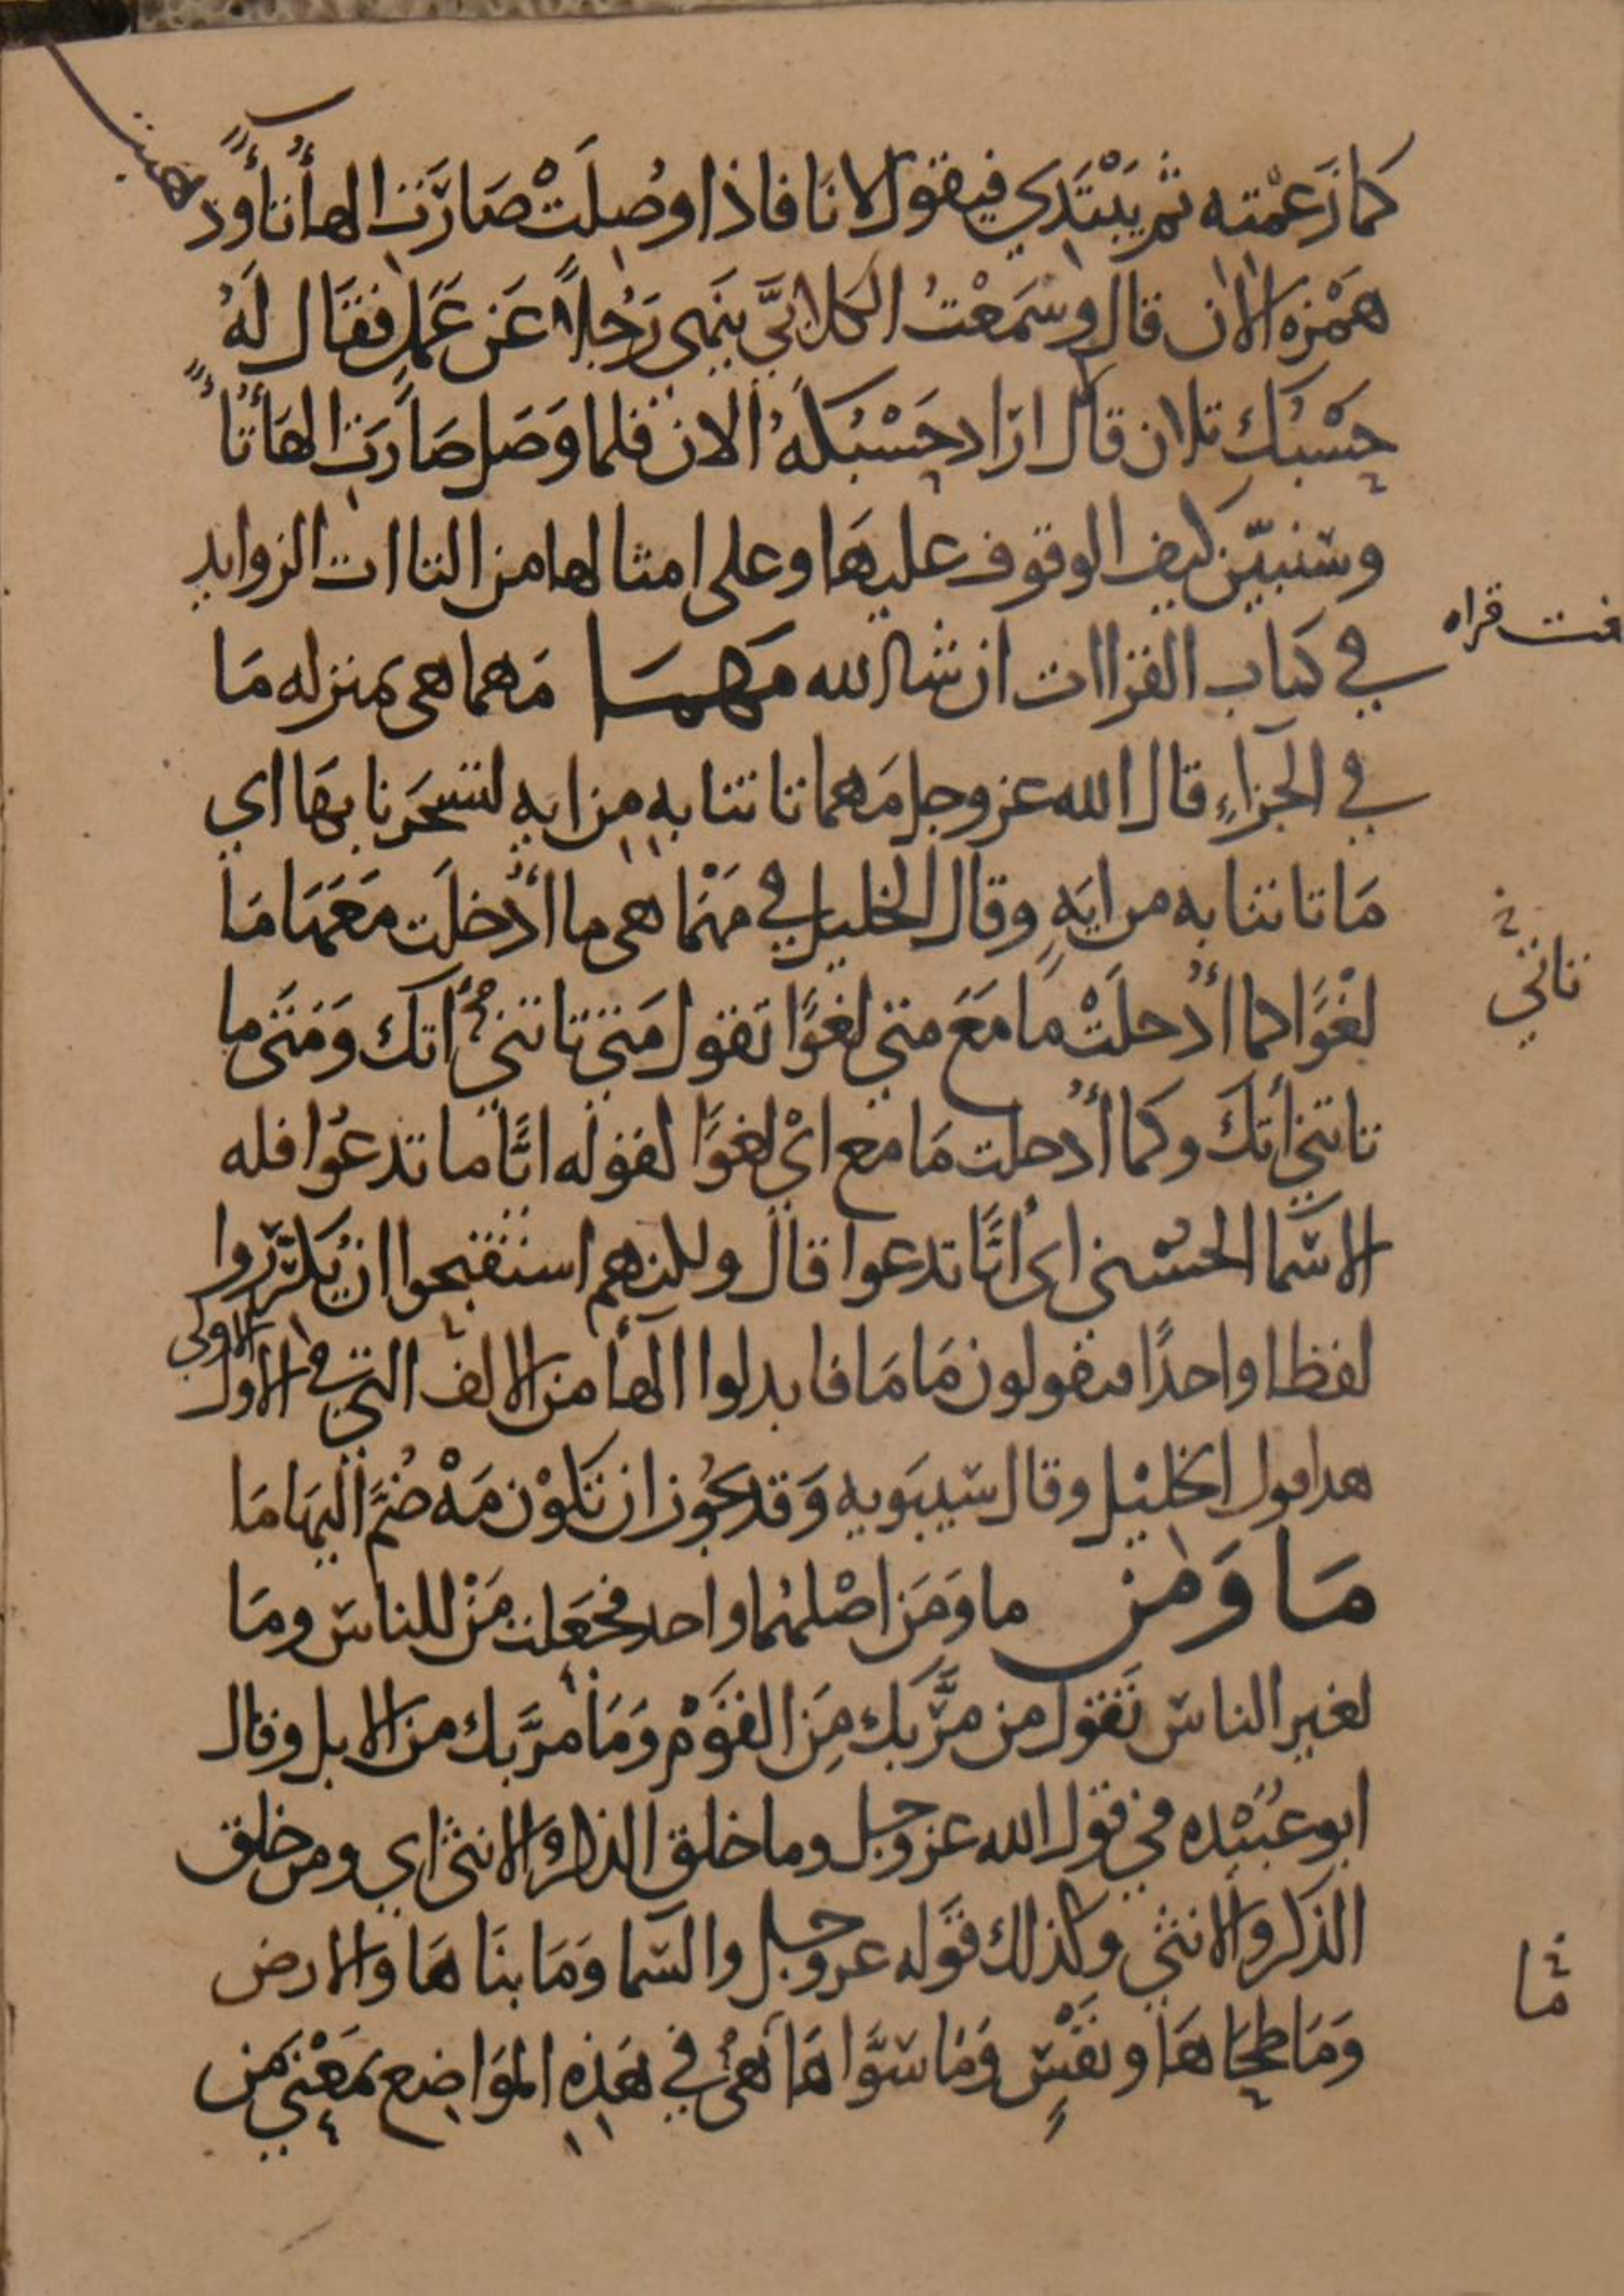 كما زَعمْته ثم يَبْتَدي فيقول الانَا فاذا وُصِلَتْ صَارَت الهأ تأ وَذهبت
هَمْزه الان قال وسَمعْتُ الكلابيَّ يَنهى رَجُلاً عَن عَمَلٍ فقال لَهُ
حَسْبُك تلان قال ارَاد حَسْبُكَهُ الان فلما وَصَل صَارت الهَأ تأً
وسَنبيّن كيف الوقوف عليهَا وعلى امثالها من التاات الزوايدِ
في كتاب القراات ان شا الله مَهمَا مَهما هى بمنزله مَا
في الجزاءِ قال الله عز وجل مَهما تاتنا به من ايه لتسْحَرنا بهَا اي
مَا تاتنا به من ايَهٍ وقال الخليل في مَهْما هى ما اُدْخلَت مَعَهَا مَا
لغْوًا كما اُدْخلَتْ مَا مَعَ متى لغْوًا تقول مَتى تاتنى اتك وَمَتَى ما
تاتنى اتكَ وكما اُدْخلت مَا مع اىْ لغوًا كقوله ايًّا ما تدعُوا فله
الاسَما الحسْنى اى ايًّا تدعوا قال ولكنهم استقبحوا ان يُكَرّرُوا
لفظا واحدًا فيقولون مَا مَا فابدلوا الهأ من الالف التي في الاول
الاولى
هذا قول الخليْل وقال سيبَويه وَقد يجُوز ان تكوْن مَهْ ضُمَّ اليهَا مَا
مَا وَمَن ما وَمَن اصْلهُما واحد فجَعَلت مَنْ للناس ومَا
لغير الناس تَقول من مَرَّ بك مِنَ القَوْم وَمَا مرَّ بك من الابل وقال
ابو عُبَيْده في قول الله عز وجل وما خلق الذكر والانثى اي ومن خلق
الذكر والانثى وكذلك قوَله عز وجل والسَما وَمَا بنَاهَا والارض
وَمَا طحَاهَا ونفسٍ وَمَا سَوَّاهَا هىَ في هَذِه المَوَاضع بمَعْنى مَن
قراه
تاتني
ما